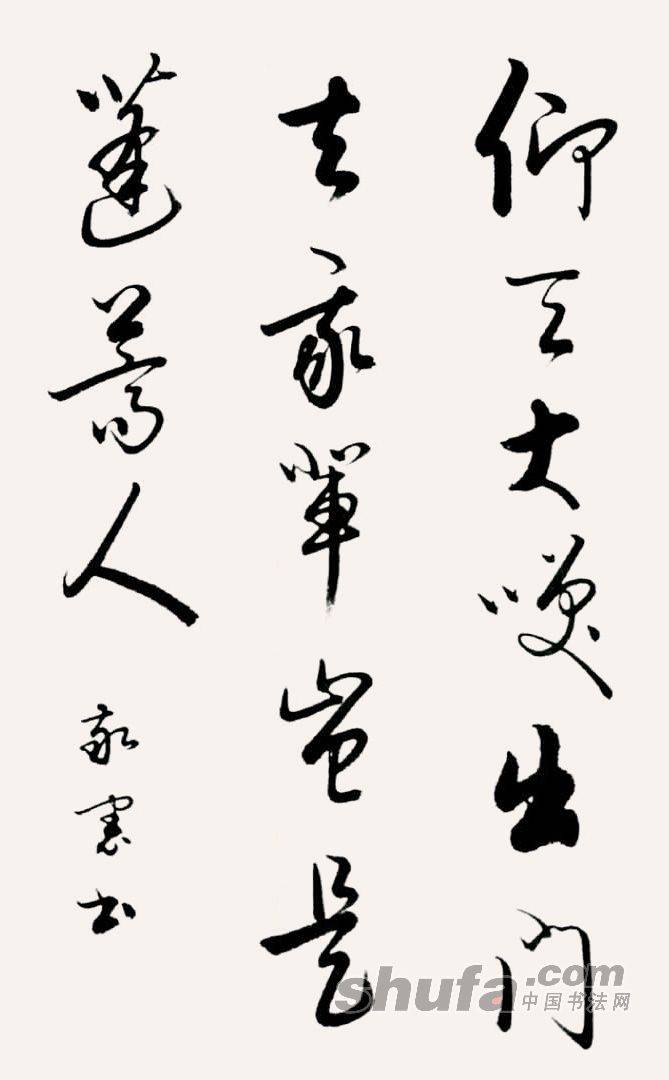 仰天大唉出門
去我輩豈是
蓬蒿人
敬憲书
shufa.com
中国书法网